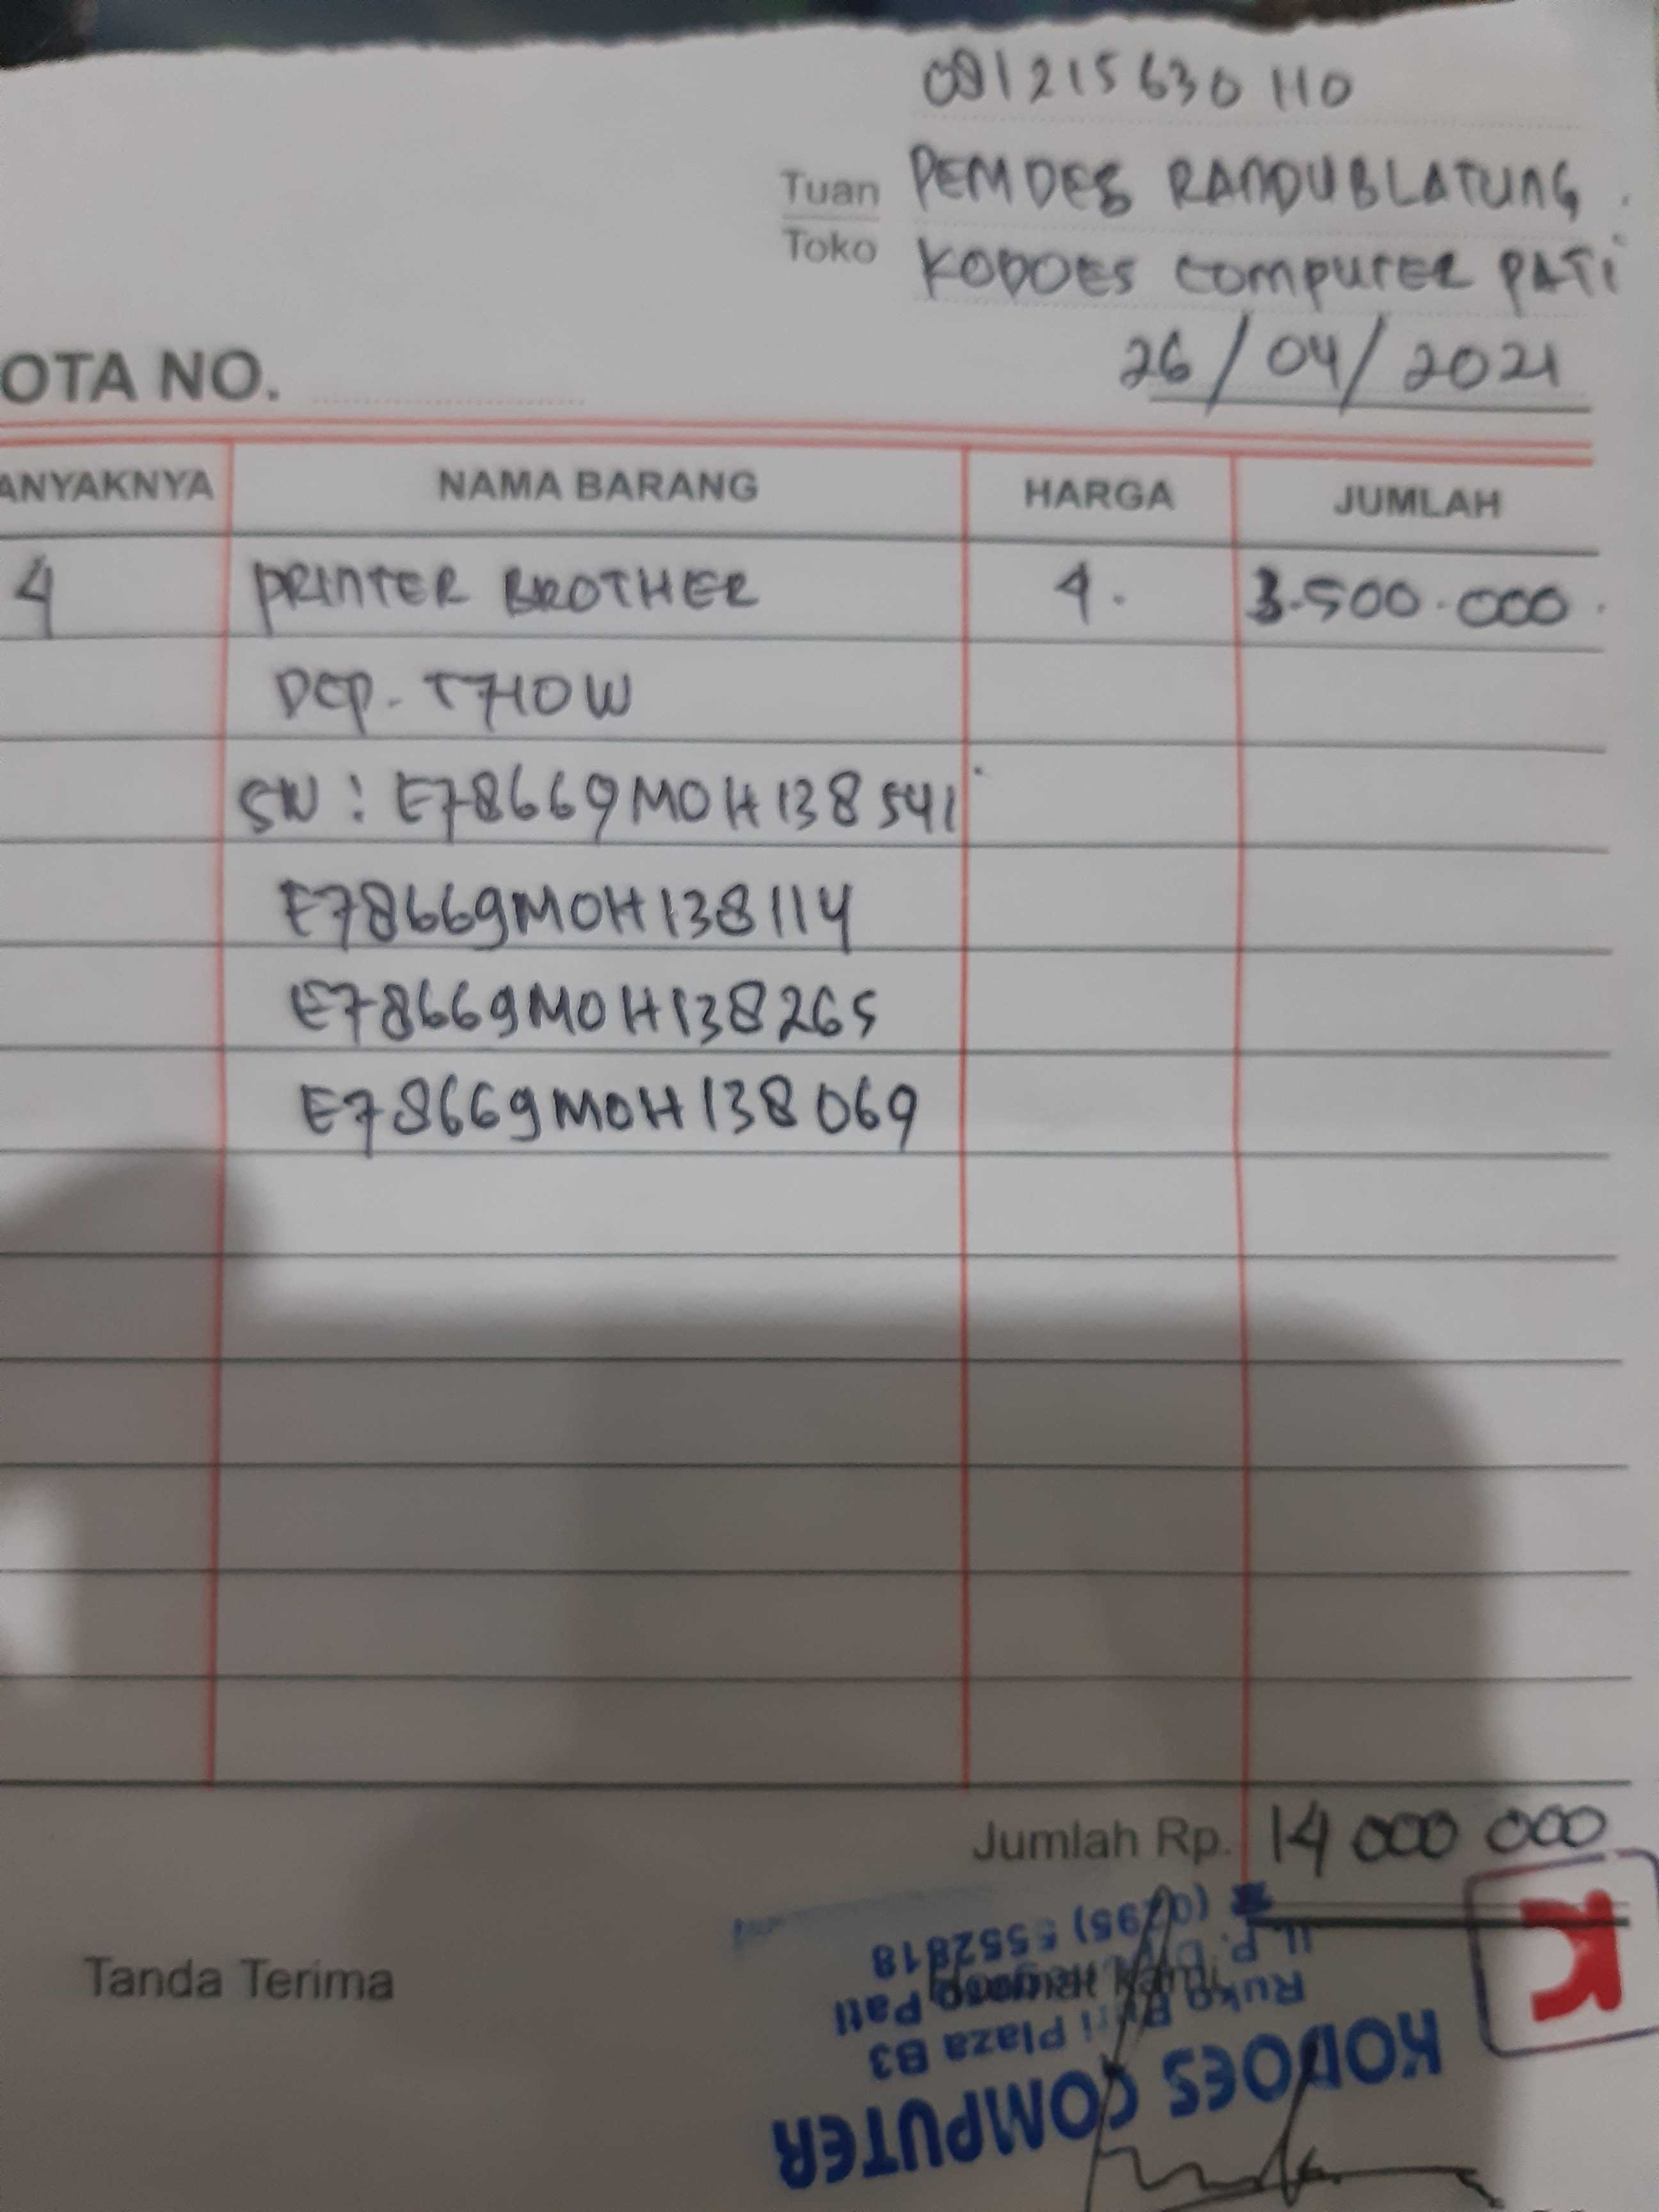 081215630110
Tuan PEMDES RANDUBLATUNG.
Toko KODOES COMPUTER PATI
26/04/2021
OTA NO.
ANYAKNYA NAMA BARANG HARGA JUMLAH
4 PRINTER BROTHER 4. 3.500.000.
DCP-T710W
SN: E78669M0H138541
E78669M0H138114
E78669M0H138265
E78669M0H138069
Jumlah Rp. 14 000 000
Tanda Terima
K
KODOES COMPUTER
Plaza B3
Pati
552818